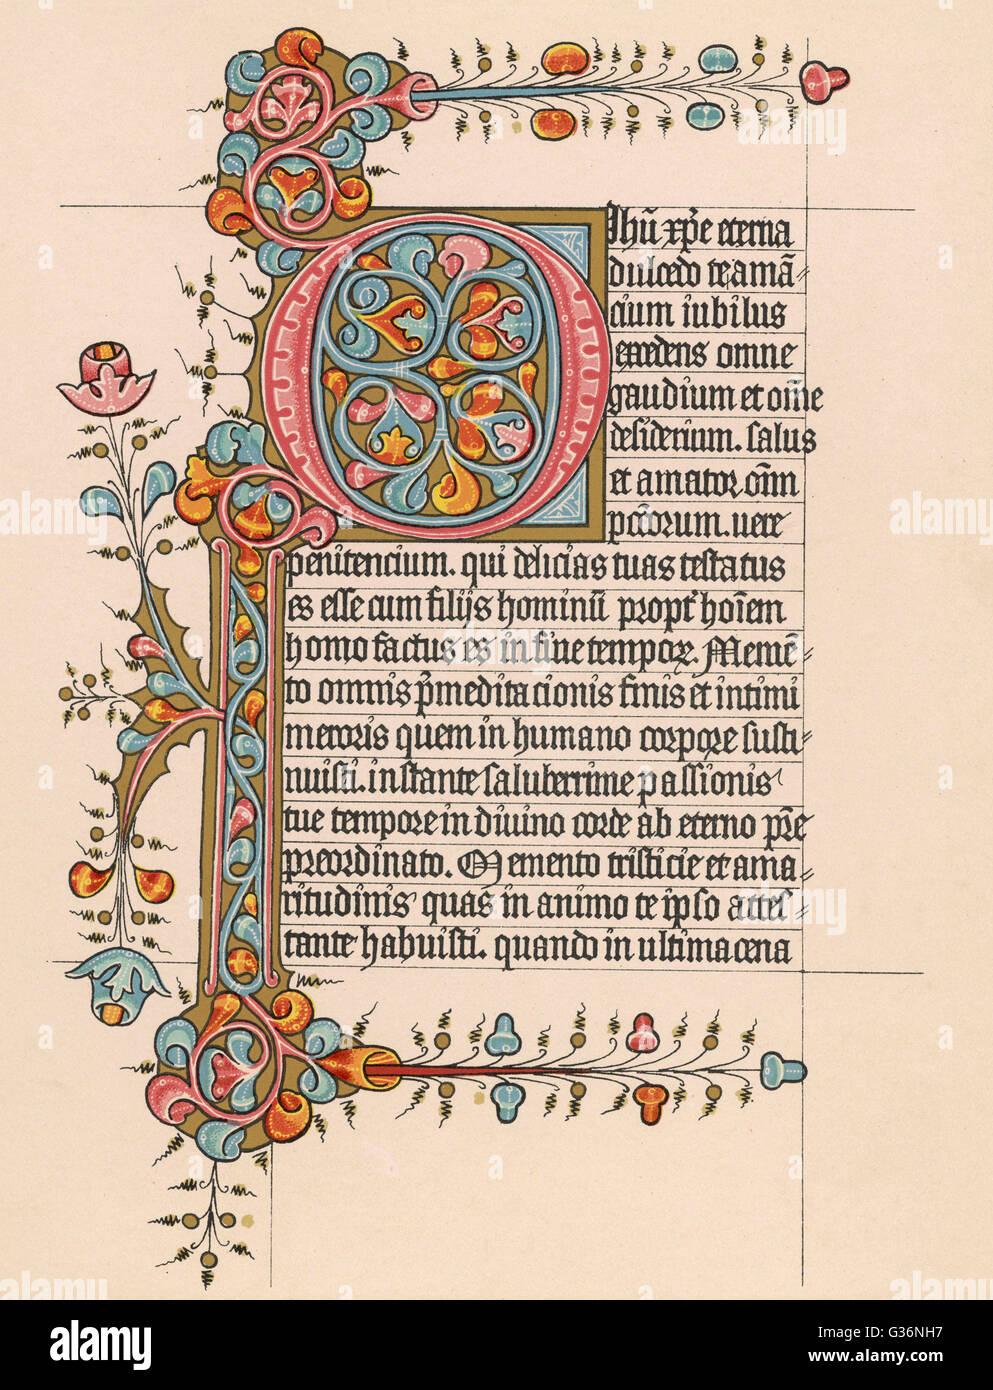 O Ihū xp̄e eterna
dulcedo te amā⸗
cium iubilus
excedens omne
gaudium et om̄e
desiderium. salus
et amator om̄
pc̄torum. uere
penitencium. qui delicias tuas testatus
es esse cum filijs hominū propt' hoīem
homo factus es in fine temporꝝ. Memē⸗
to omnis p̄meditacionis finis et intimi
meroris quem in humano corpore susti⸗
nuisti. instante saluberrime passionis
tue tempore in diuino corde ab eterno pre
preordinato. Memento tristicie et ama⸗
ritudinis quas in animo te ipso attes⸗
tante habuisti. quando in ultima cena
alamy
alamy
Image ID: G36NH7
www.alamy.com